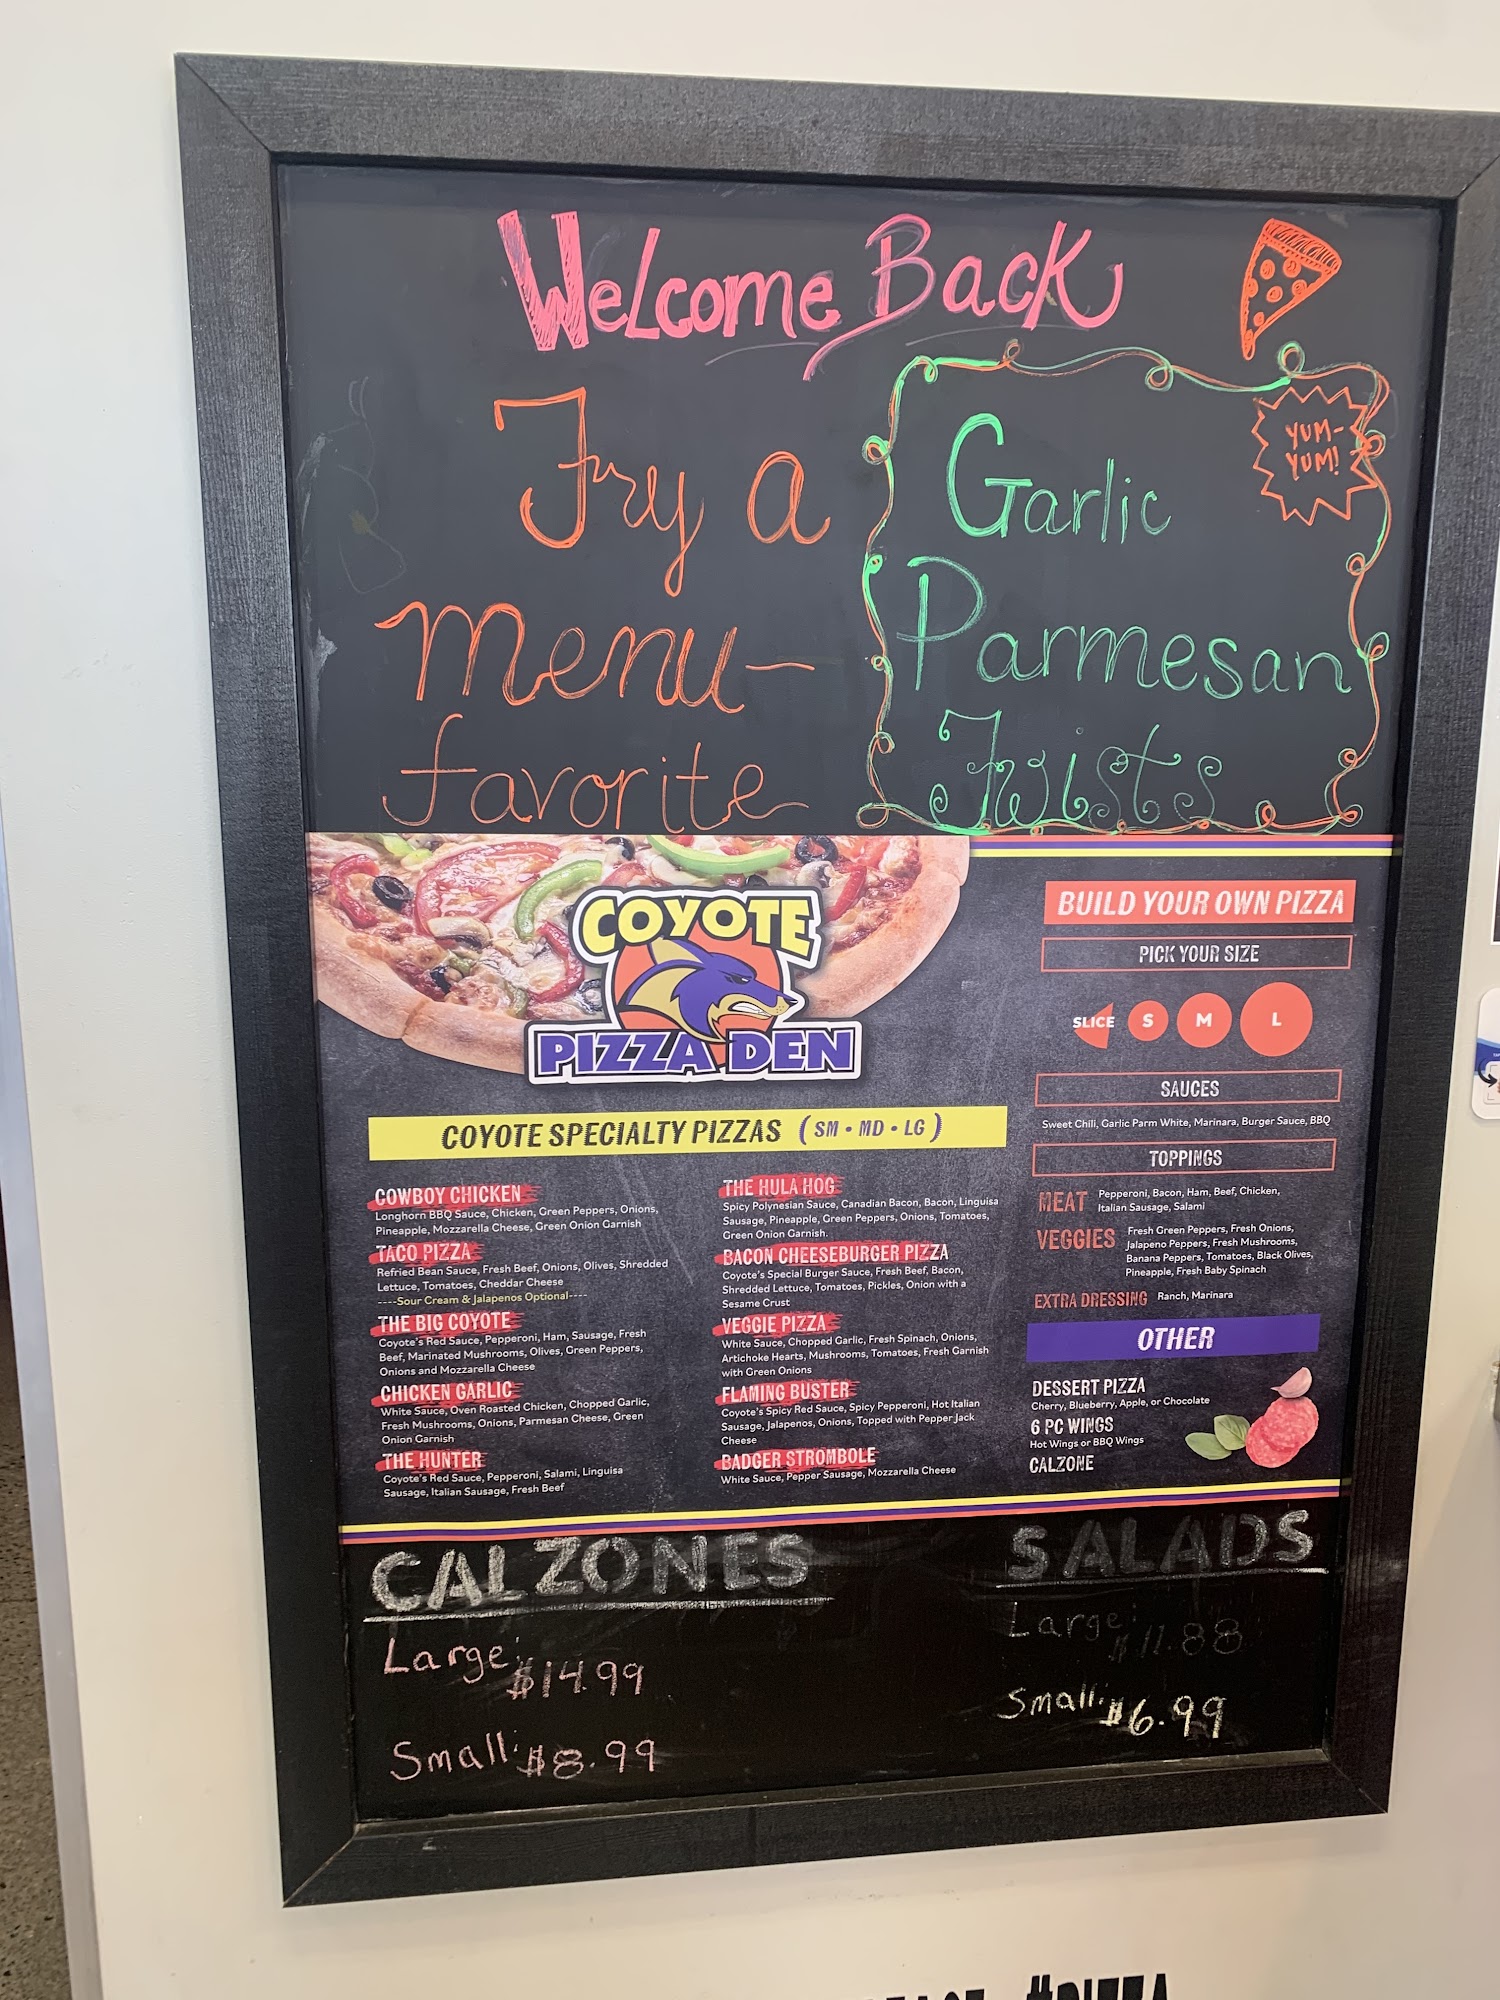 Welcome Back
Try a
menu-
favorite
Garlic
Parmesan
Twists
YUM-
YUM!
COYOTE
PIZZA DEN
COYOTE SPECIALTY PIZZAS (SM • MD • LG)
COWBOY CHICKEN
Longhorn BBQ Sauce, Chicken, Green Peppers, Onions,
Pineapple, Mozzarella Cheese, Green Onion Garnish
TACO PIZZA
Refried Bean Sauce, Fresh Beef, Onions, Olives, Shredded
Lettuce, Tomatoes, Cheddar Cheese
----Sour Cream & Jalapenos Optional----
THE BIG COYOTE
Coyote's Red Sauce, Pepperoni, Ham, Sausage, Fresh
Beef, Marinated Mushrooms, Olives, Green Peppers,
Onions and Mozzarella Cheese
CHICKEN GARLIC
White Sauce, Oven Roasted Chicken, Chopped Garlic,
Fresh Mushrooms, Onions, Parmesan Cheese, Green
Onion Garnish
THE HUNTER
Coyote's Red Sauce, Pepperoni, Salami, Linguisa
Sausage, Italian Sausage, Fresh Beef
THE HULA HOG
Spicy Polynesian Sauce, Canadian Bacon, Bacon, Linguisa
Sausage, Pineapple, Green Peppers, Onions, Tomatoes,
Green Onion Garnish.
BACON CHEESEBURGER PIZZA
Coyote's Special Burger Sauce, Fresh Beef, Bacon,
Shredded Lettuce, Tomatoes, Pickles, Onion with a
Sesame Crust
VEGGIE PIZZA
White Sauce, Chopped Garlic, Fresh Spinach, Onions,
Artichoke Hearts, Mushrooms, Tomatoes, Fresh Garnish
with Green Onions
FLAMING BUSTER
Coyote's Spicy Red Sauce, Spicy Pepperoni, Hot Italian
Sausage, Jalapenos, Onions, Topped with Pepper Jack
Cheese
BADGER STROMBOLE
White Sauce, Pepper Sausage, Mozzarella Cheese
BUILD YOUR OWN PIZZA
PICK YOUR SIZE
SLICE S M L
SAUCES
Sweet Chili, Garlic Parm White, Marinara, Burger Sauce, BBQ
TOPPINGS
MEAT Pepperoni, Bacon, Ham, Beef, Chicken,
Italian Sausage, Salami
VEGGIES Fresh Green Peppers, Fresh Onions,
Jalapeno Peppers, Fresh Mushrooms,
Banana Peppers, Tomatoes, Black Olives,
Pineapple, Fresh Baby Spinach
EXTRA DRESSING Ranch, Marinara
OTHER
DESSERT PIZZA
Cherry, Blueberry, Apple, or Chocolate
6 PC WINGS
Hot Wings or BBQ Wings
CALZONE
CALZONES
Large: $14.99
Small: $8.99
SALADS
Large: $11.88
Small: $6.99
#PIZZA